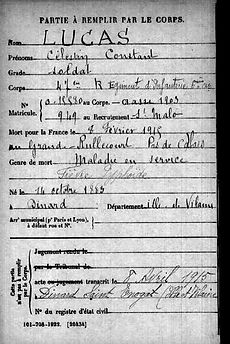 PARTIE À REMPLIR PAR LE CORPS.
Nom LUCAS
Prénoms Célestin Constant
Grade soldat
Corps 47me R Régiment d'Infanterie
N° a 15880 au Corps. — Classe 1903
Matricule. 949 au Recrutement St Malo
Mort pour la France le 8 février 1915
au Grand-Rullecourt Pas de Calais
Genre de mort Maladie en service
Fièvre Typhoïde
Né le 14 octobre 1883
à Dinard Département Ille de Vilaine
Arrt municipal (pr Paris et Lyon), à défaut rue et N°.
Cette partie n'est pas à remplir par le Corps.
Jugement rendu le
par le Tribunal de
acte ou jugement transcrit le 8 Avril 1915
à Dinard Saint Enogat (Ille et Vilaine)
N° du registre d'état civil
101-708-1922. [26434]